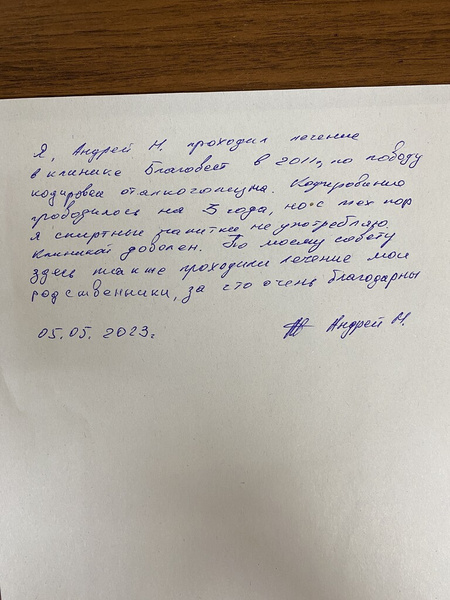 Я, Андрей Н. проходил лечение
в клинике Благовест в 2011г, по поводу
кодировки от алкоголизма. Кодирование
проводилось на 3 года, но с тех пор
я спиртные напитки не употребляю.
Клиникой доволен. По моему совету
здесь также проходили лечение мои
родственники, за что очень благодарны
05.05.2023г. Андрей Н.